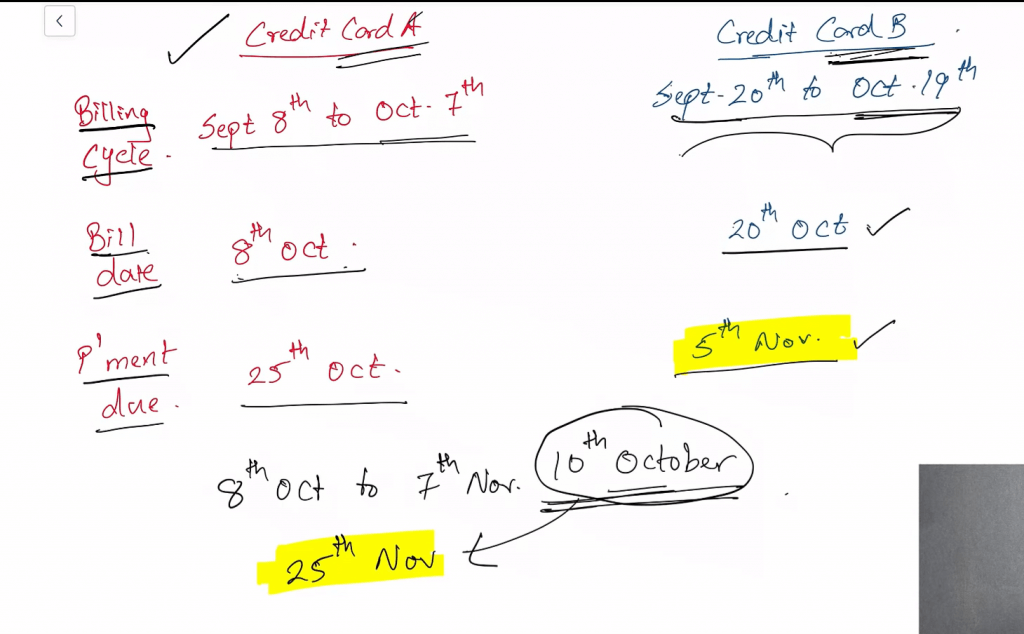 Credit Card A
Credit Card B
Billing Cycle.
Sept 8th to Oct. 7th
Sept-20th to Oct.19th
Bill date
8th Oct.
20th Oct
P'ment due.
25th Oct.
5th Nov.
8th Oct to 7th Nov.
10th October
25th Nov